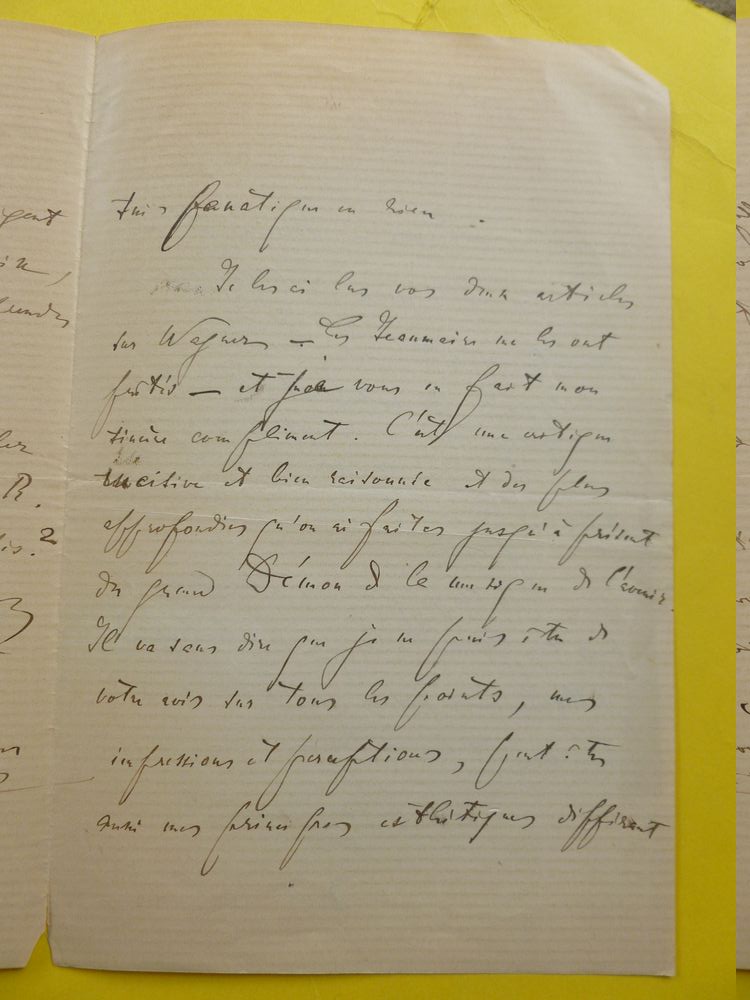 suis fanatique en rien.
Je les ai lus vos deux articles
sur Wagner — Les Jeanmaire me les ont
prêtés — et vous en fait mon
sincère compliment. C'est une critique
incisive et bien raisonnée et des plus
approfondies qu'on ai faites jusqu'à présent
du grand Démon de la musique de l'avenir.
Il va sans dire que je ne puis être de
votre avis sur tous les points, mes
impressions et perceptions, peut être
aussi mes principes esthétiques différent
gent
R.
2